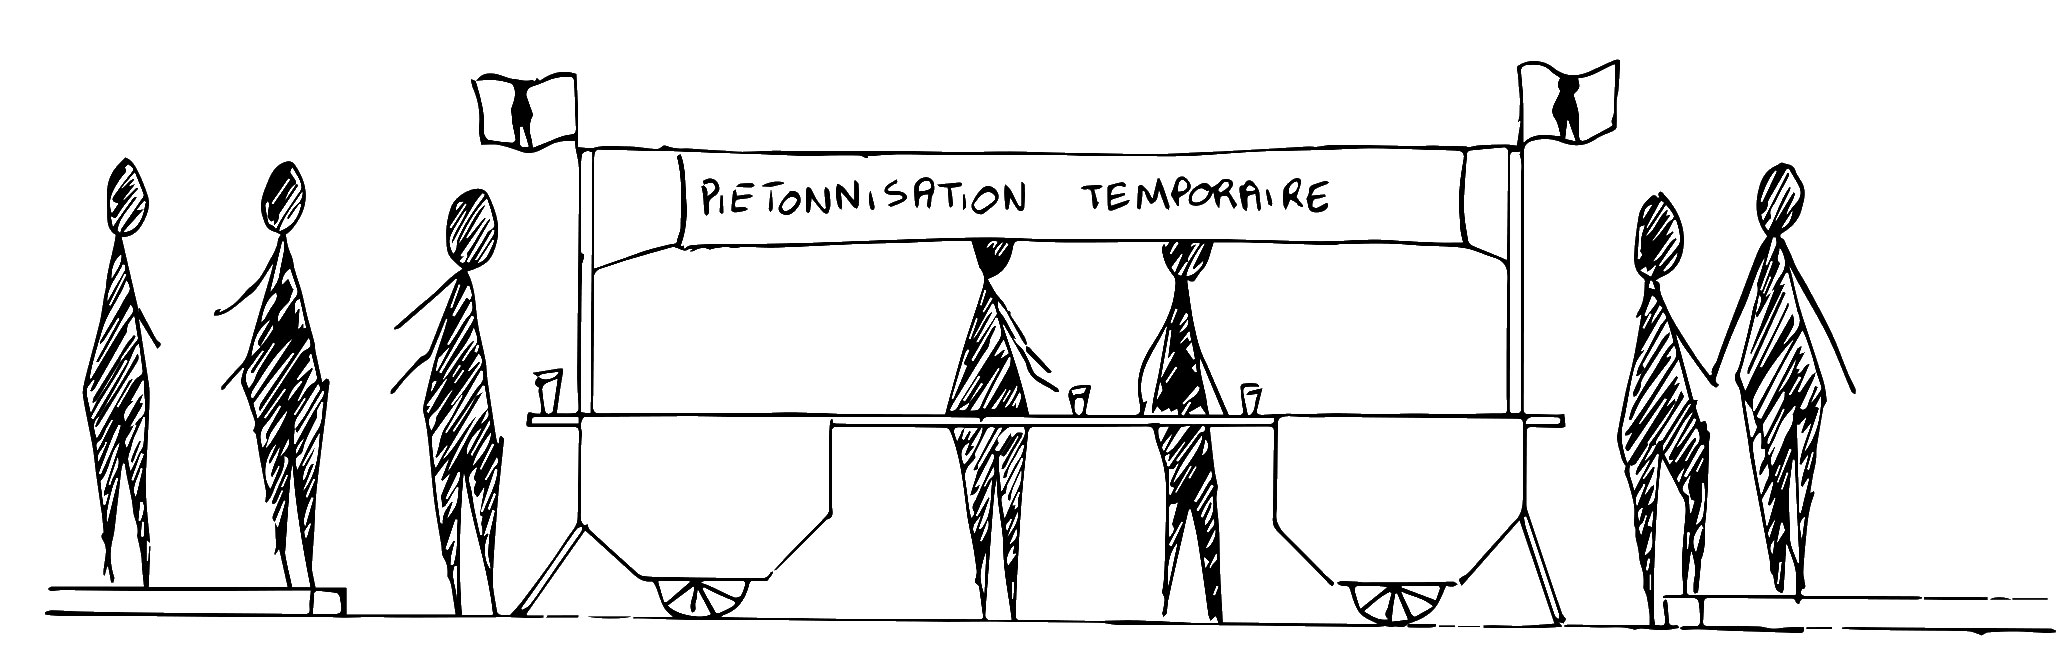 PIETONNISATION TEMPORAIRE